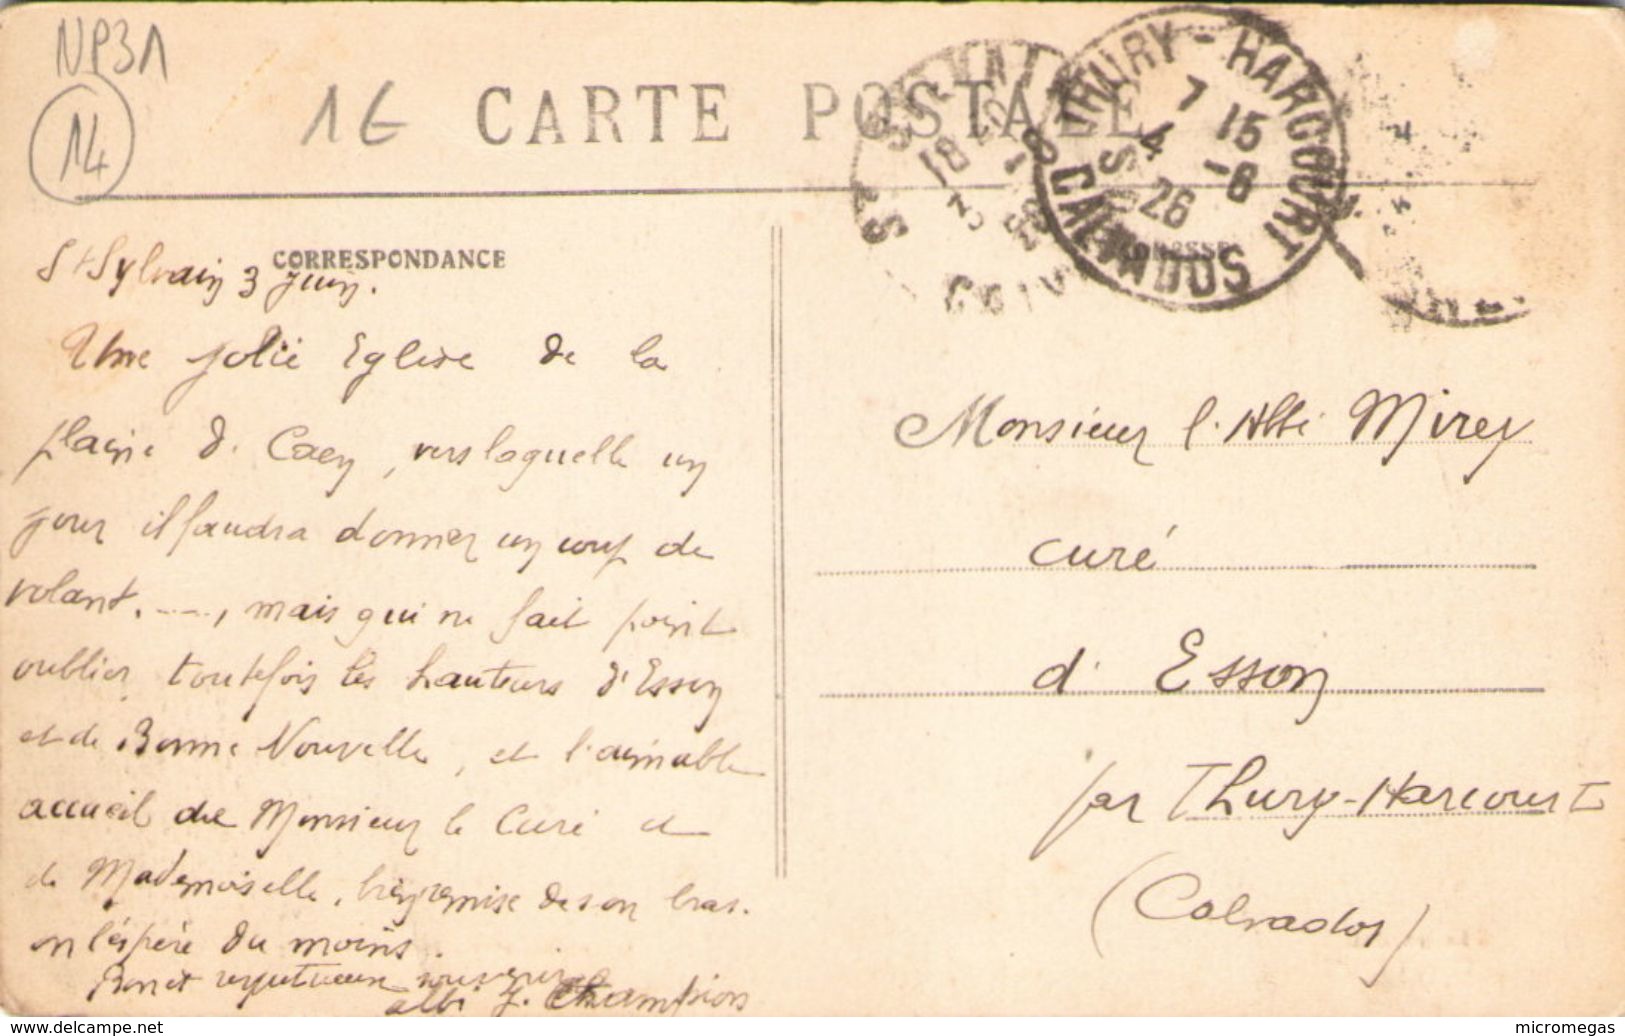 NP31
14
1€ CARTE POSTALE
THURY-HARCOURT
7 15
4 -6
26
CALVADOS
18
CORRESPONDANCE
ADRESSE
St Sylvain 3 Juin.
Une jolie Eglise de la
plaine de Caen, vers laquelle un
jour il faudra donner un coup de
volant. ---, mais qui ne fait point
oublier toutefois les hauteurs d'Esson
et de Bonne Nouvelle, et l'aimable
accueil de Monsieur le Curé et
de Mademoiselle, bien remise de son bras.
on l'espère du moins.
Bon et respectueux souvenir
abbé J. Champion
Monsieur l'Abbé Mirey
curé
d'Esson
par Thury-Harcourt
(Calvados)
micromegas